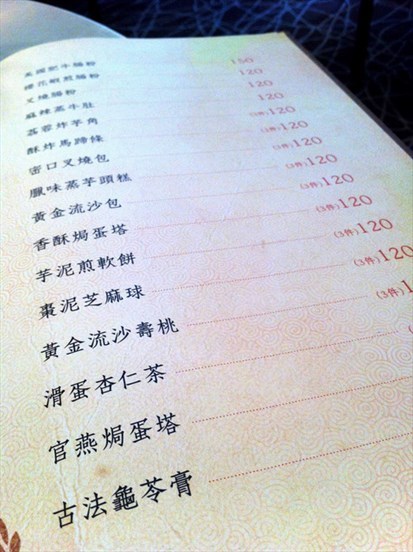 美國肥牛腸粉 150
韭花蝦煎腸粉 120
叉燒腸粉 120
麻辣蒸牛肚 120
荔蓉炸芋角 (3件)120
酥炸馬蹄條 (3件)120
密口叉燒包 (3件)120
臘味蒸芋頭糕 (3件)120
黃金流沙包 (3件)120
香酥焗蛋塔 (3件)120
芋泥煎軟餅 (3件)120
棗泥芝麻球 (3件)120
黃金流沙壽桃 (3件)1
滑蛋杏仁茶
官燕焗蛋塔
古法龜苓膏